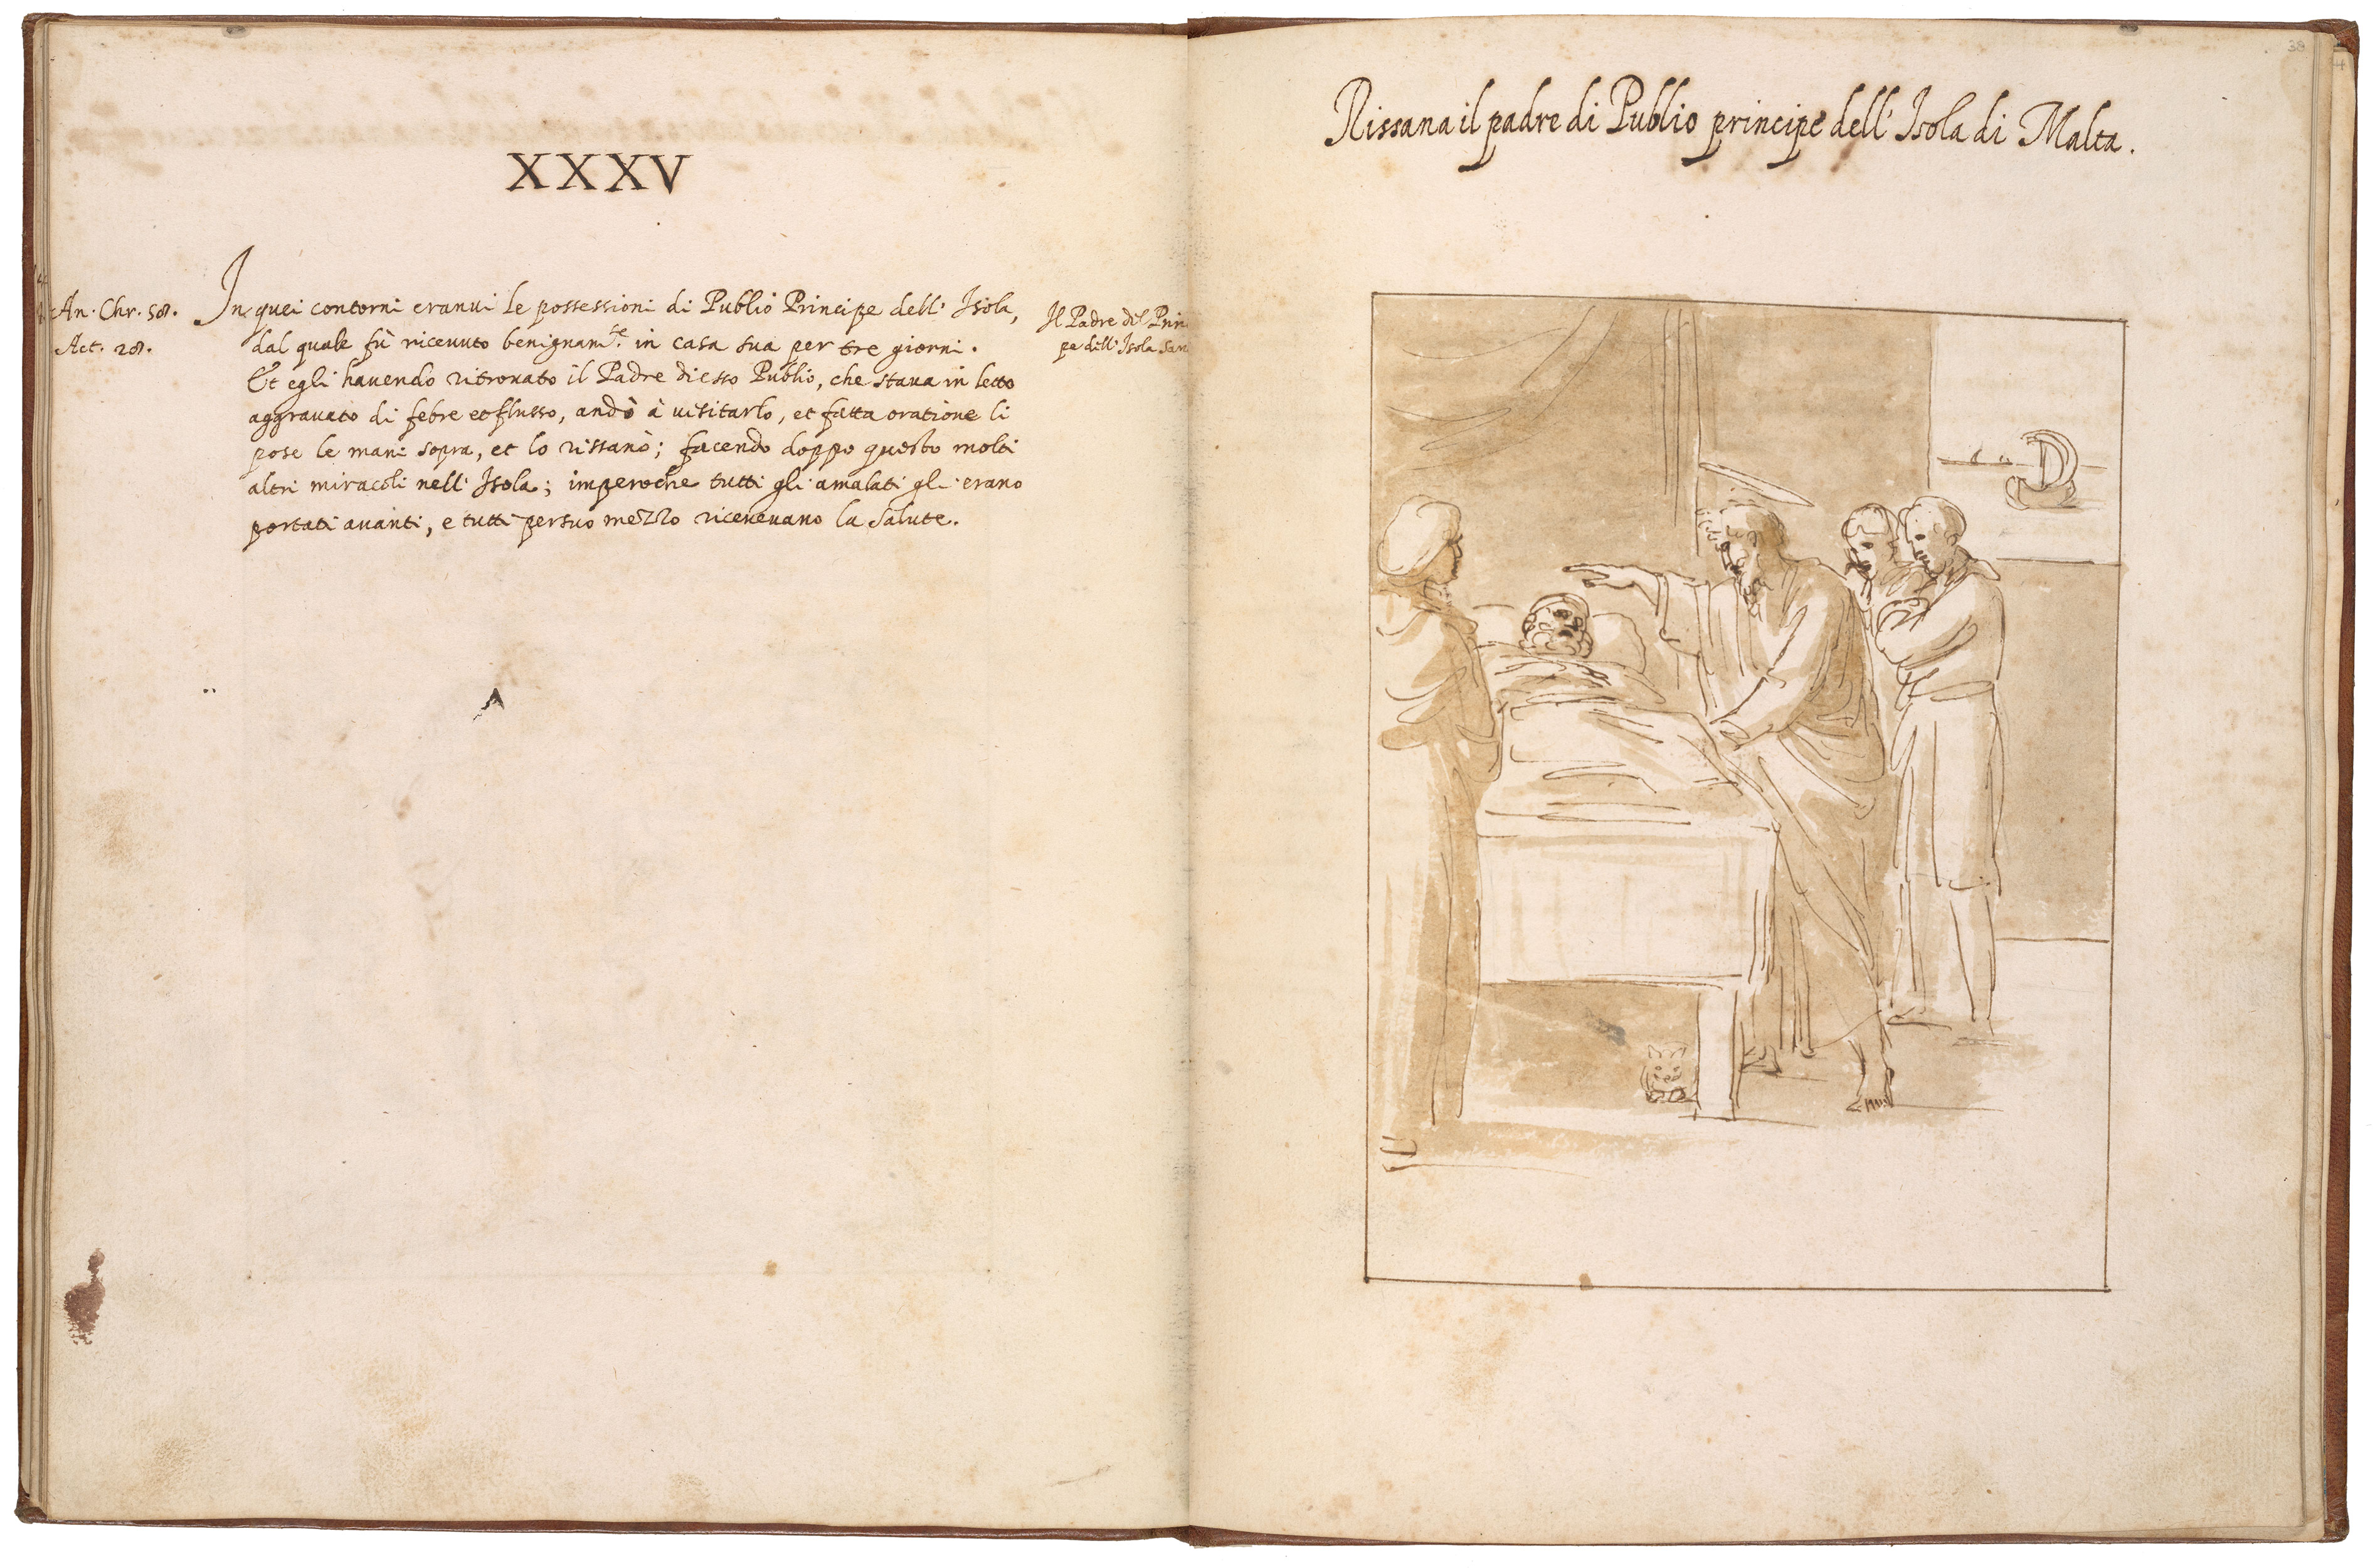 XXXV
An. Chr. 58.
Act. 28.
In quei contorni eranui le possessioni di Publio Principe dell' Isola,
dal quale fù riceuuto benignam.te in casa sua per tre giorni.
Et egli hauendo ritrouato il Padre di esso Publio, che staua in letto
aggrauato di febre et flusso, andò à uisitarlo, et fatta oratione li
pose le mani sopra, et lo rissanò; facendo doppo questo molti
altri miracoli nell' Isola; imperoche tutti gli amalati gli erano
portati auanti, e tutti per suo mezzo riceueuano la salute.
Il Padre del Prin
pe dell' Isola san
Rissana il padre di Publio principe dell' Isola di Malta.
38